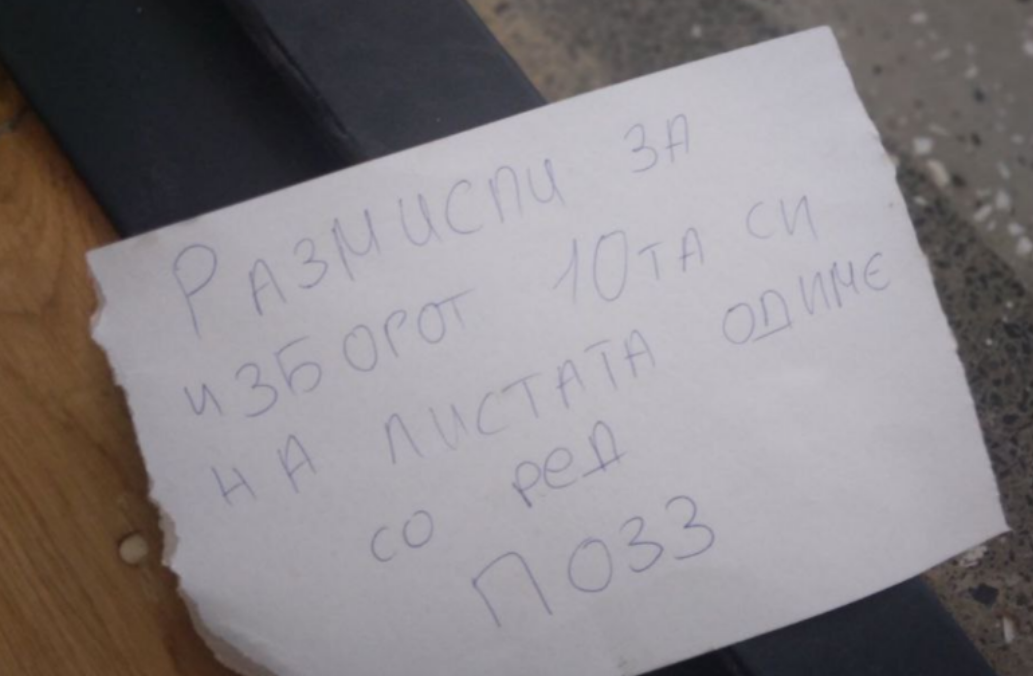 РАЗМИСЛИ ЗА
ИЗБОРОТ 10ТА СИ
НА ЛИСТАТА ОДИМЕ
СО РЕД
ПОЗЗ